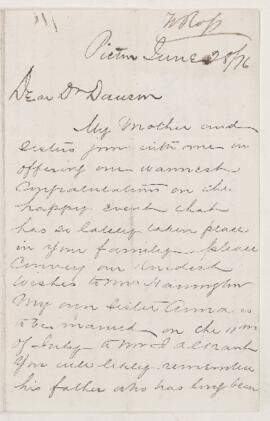 W Ross
Pictou June 28/76
Dear Dr Dawson
My Mother and
Sisters join with me in
offering our warmest
Congratulations on the
happy event that
has so lately taken place
in your family. Please
Convey our kindest
wishes to Mrs Harrington
My own Sister Anna is
to be married on the
of July to Mr Grant
You will likely remember
his father who has long been